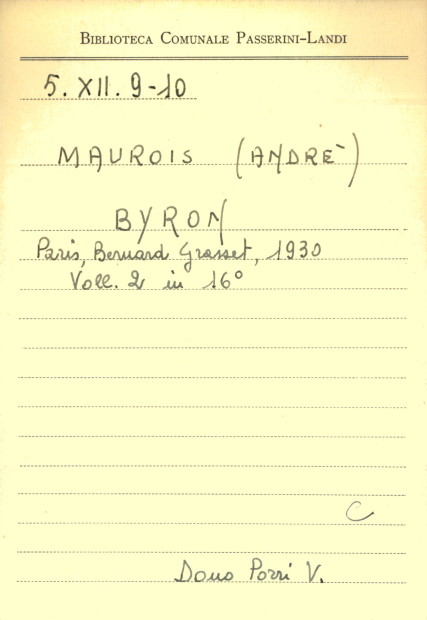 BIBLIOTECA COMUNALE PASSERINI-LANDI
5. XII. 9-10
MAUROIS (ANDRÈ)
BYRON
Paris, Bernard Grasset, 1930
Voll. 2 in 16°
C
Dono Porri V.